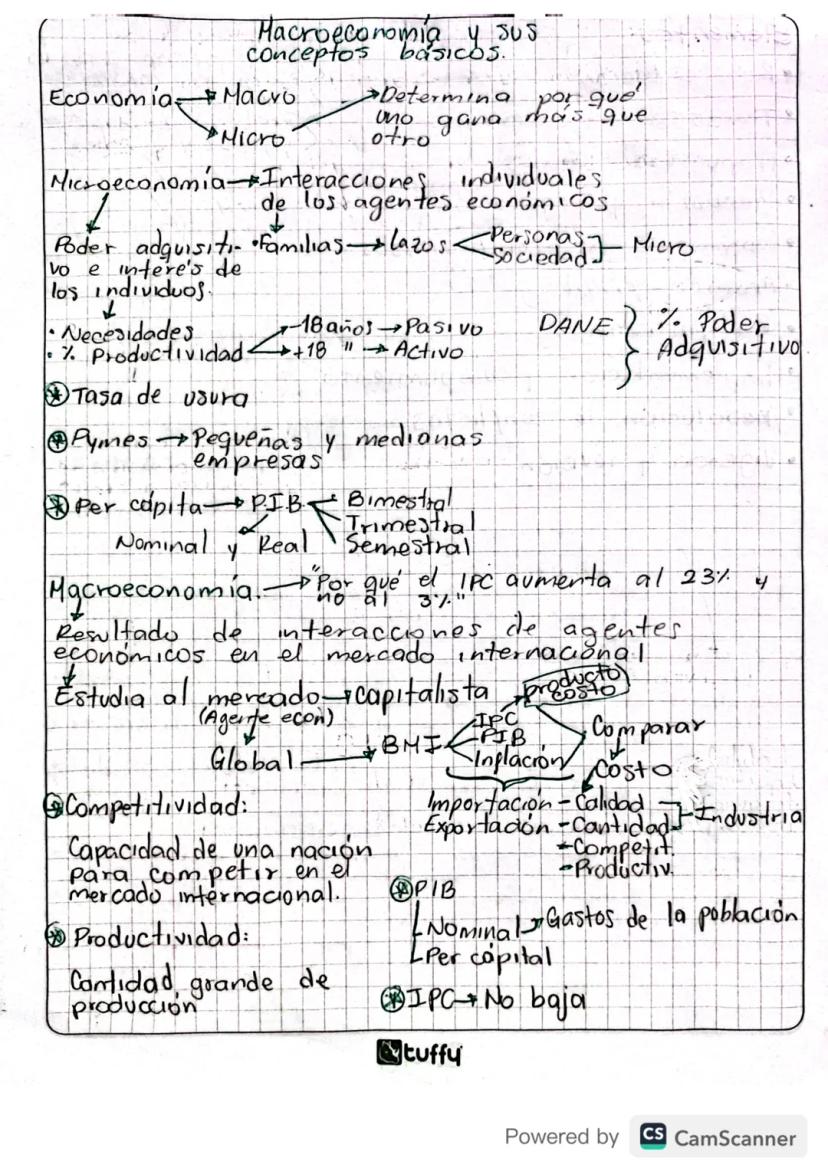 Macroeconomía y sus
conceptos básicos.
Economía → Macro
→ Micro → Determina por qué
uno gana más que
otro
Microeconomía → Interacciones individuales
de los agentes económicos
Poder adquisiti-
vo e interés de
los individuos.
• Familias → Lazos < Personas
Sociedad ] Micro
• Necesidades
• % Productividad → -18 años → Pasivo
→ +18 " → Activo
DANE } % Poder
Adquisitivo
* Tasa de usura
* Pymes → Pequeñas y medianas
empresas
* Per cápita → P.I.B. Bimestral
Trimestral
Semestral
Nominal y Real
Macroeconomía. → "Por qué el IPC aumenta al 23% y
no al 3%"
Resultado de interacciones de agentes
económicos en el mercado internacional
Estudia al mercado → capitalista
(Agente econ)
Global → BMI
IPC → producto
costo
PIB
Inflación
Comparar
Costo
Importación - Calidad
Exportación - Cantidad ] Industria
- Competit.
- Productiv.
* Competitividad:
Capacidad de una nación
para competir en el
mercado internacional.
* Productividad:
Cantidad grande de
producción
* PIB
Nominal → Gastos de la población
Per cápital
* IPC → No baja
tuffy
Powered by CS CamScanner